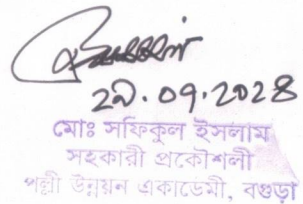 ২৯.০৭.২০২৪
মোঃ সফিকুল ইসলাম
সহকারী প্রকৌশলী
পল্লী উন্নয়ন একাডেমী, বগুড়া